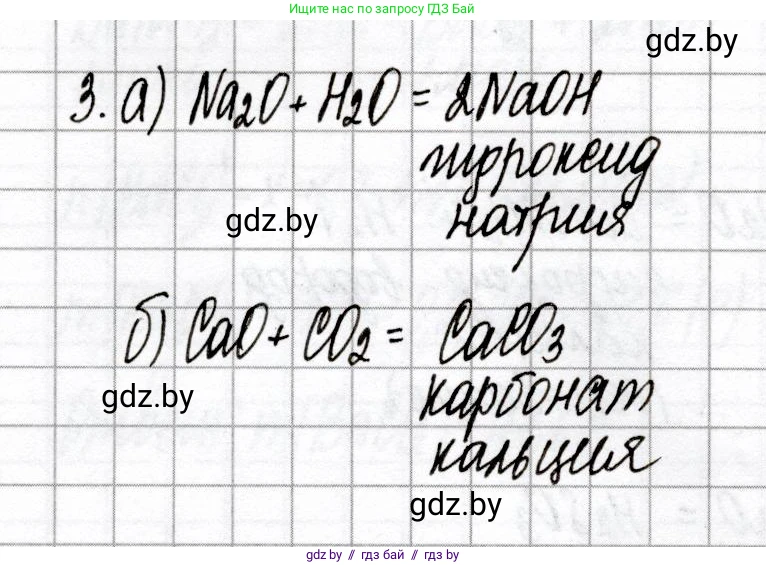 Ищите нас по запросу ГДЗ Бай
gdz.by
3. а) Na₂O + H₂O = 2NaOH
гидроксид
gdz.by
натрия
б) CaO + CO₂ = CaCO₃
gdz.by
карбонат
кальция
gdz.by
gdz.by // гдз бай // gdz.by